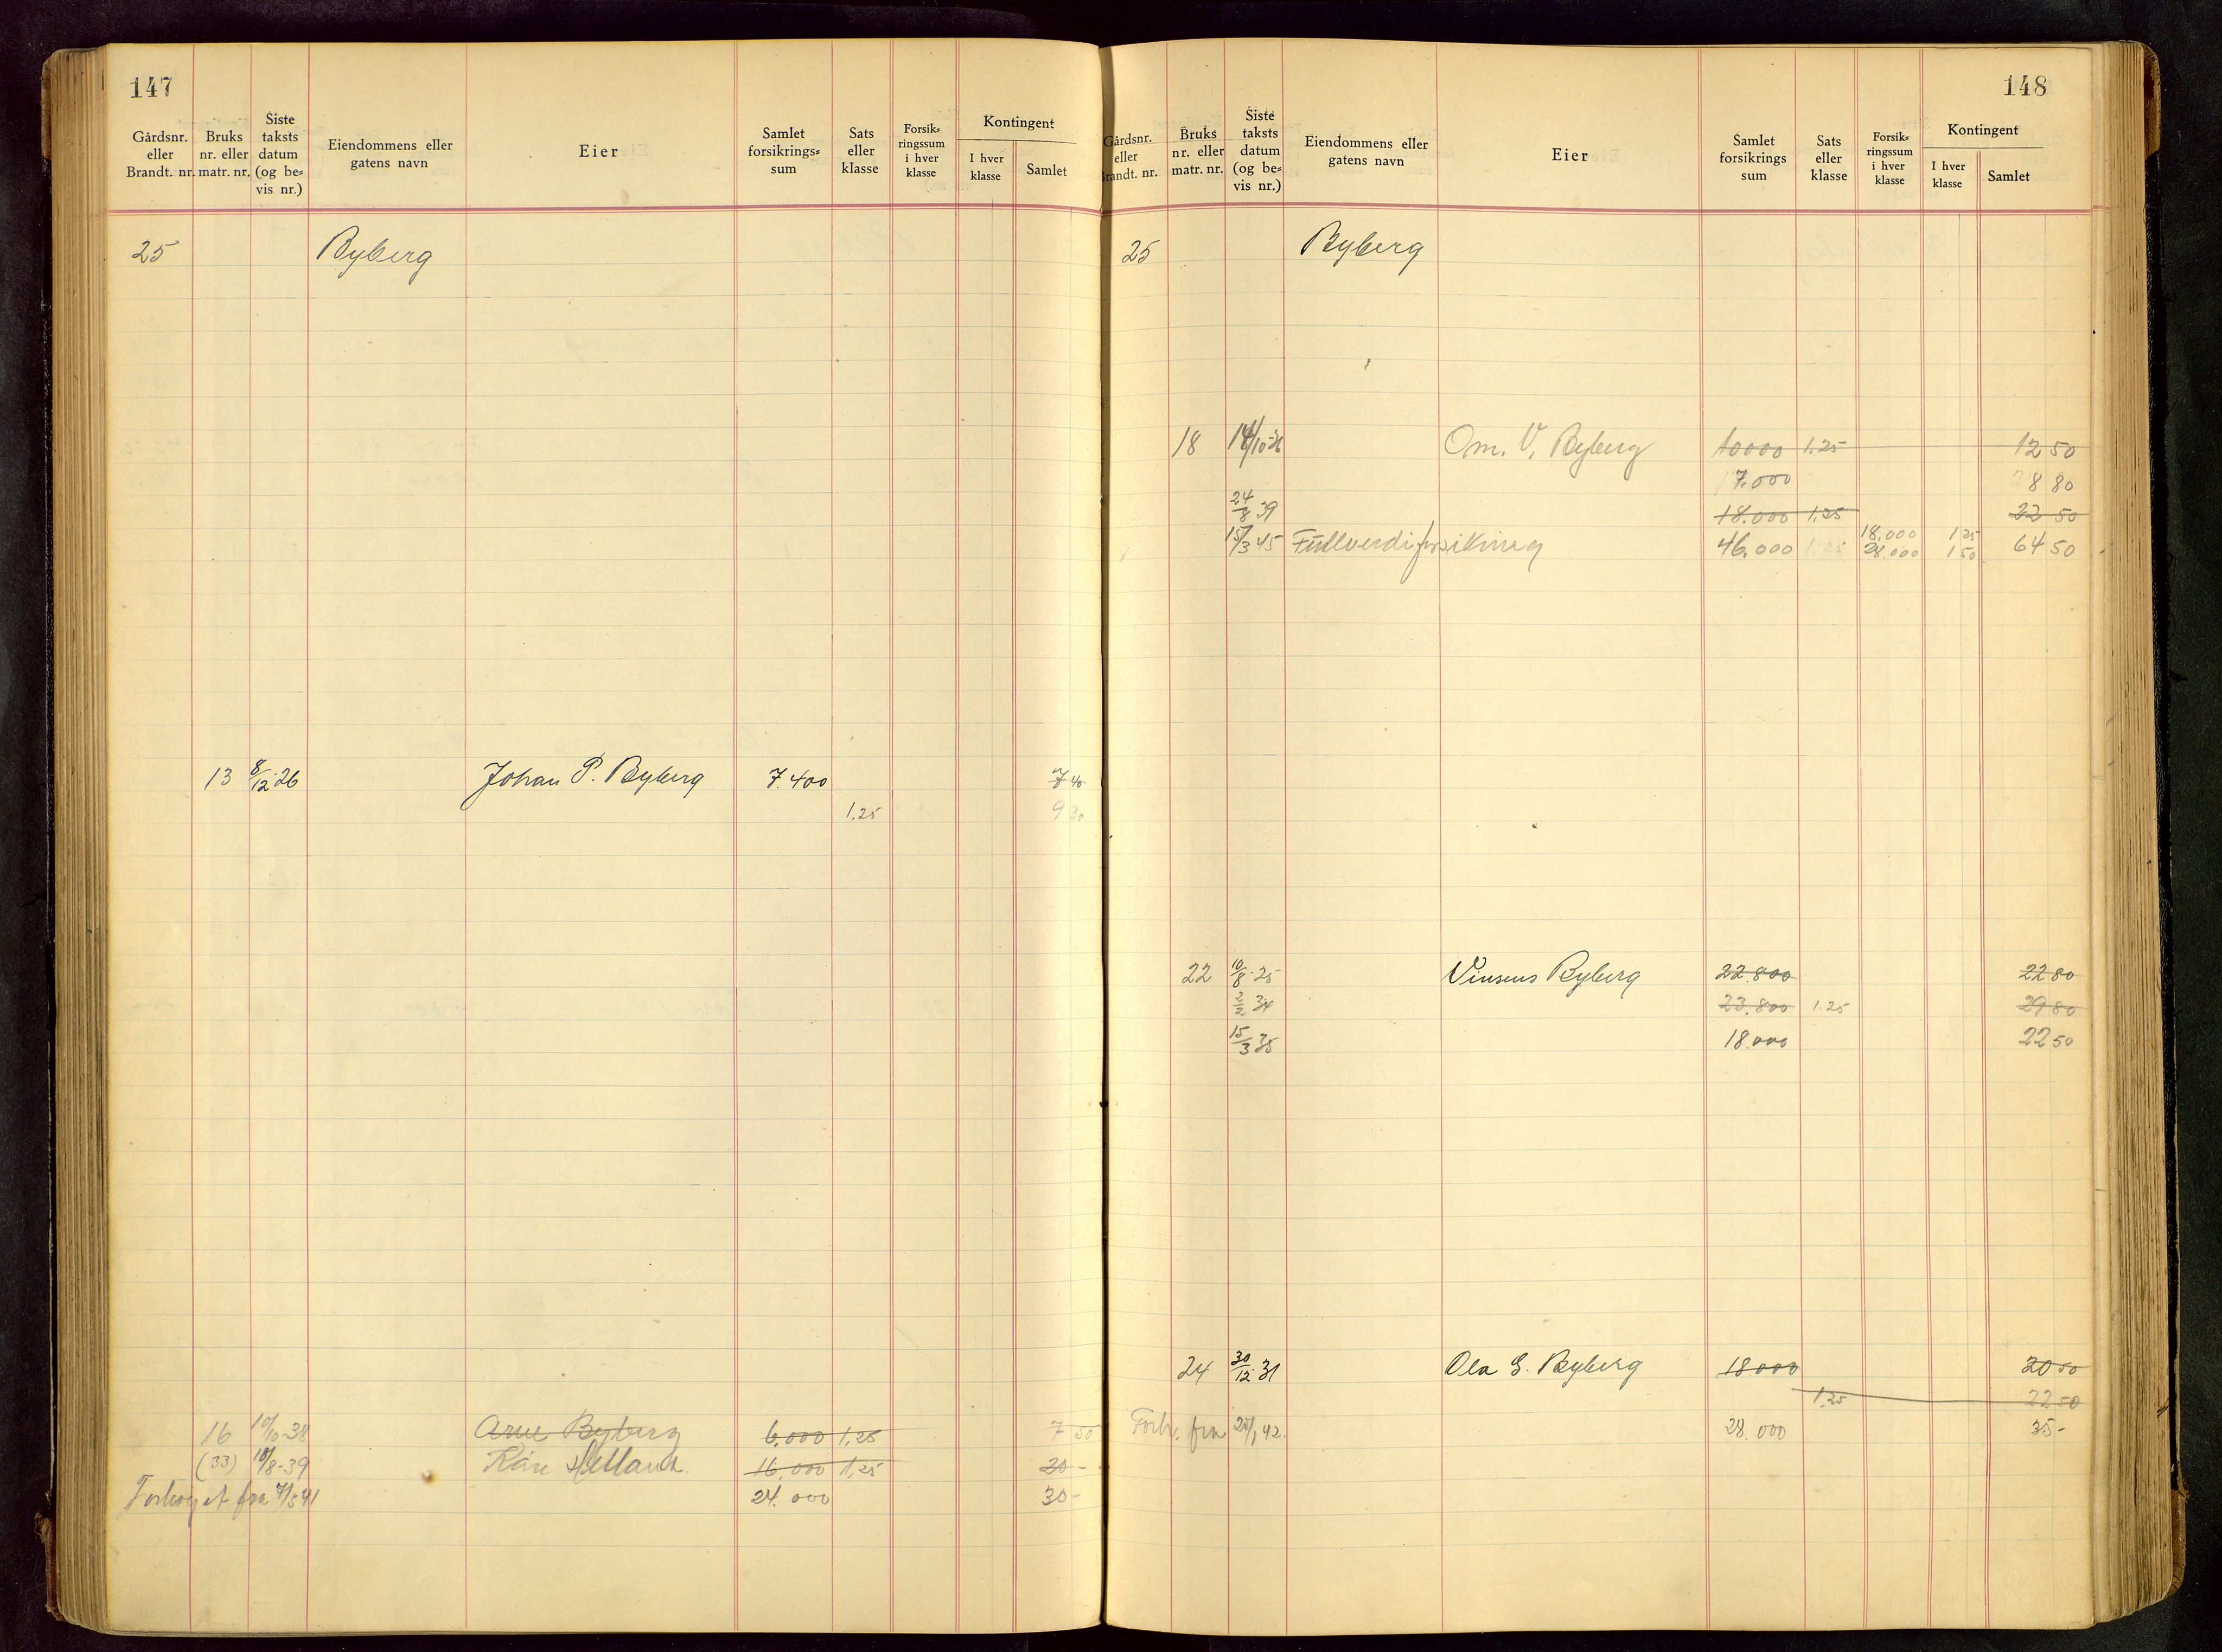 147
Gårdsnr. eller Brandt. nr. Bruks nr. eller matr. nr. Siste taksts datum (og be= vis nr.) Eiendommens eller gatens navn Eier Samlet forsikrings= sum Sats eller klasse Forsik= ringssum i hver klasse Kontingent I hver klasse Samlet
25 Byberg
13 8/12-26 Johan P. Byberg 7.400 7 40
1.25 9 30
16 10/10-38 Arne Byberg 6.000 1,25 7 50
(33) 18/8-39 Kåre Helland. 16.000 1,25 20 -
Forhøyet fra 7/5 41 24.000 30 -
148
Gårdsnr. eller Brandt. nr. Bruks nr. eller matr. nr. Siste taksts datum (og be= vis nr.) Eiendommens eller gatens navn Eier Samlet forsikrings sum Sats eller klasse Forsik= ringssum i hver klasse Kontingent I hver klasse Samlet
25 Byberg
18 14/10-36 Om. V. Byberg 10000 1.25 12 50
7.000 8 80
24/8 39 18.000 1,25 22 50
15/3 45 Fullverdiforsikring 46.000 1,25 18,000 1 25 64 50
28.000 1 50
22 10/8-25 Vinsens Byberg 22.800 22 80
2/2 34 23.800 1.25 29 80
15/3 35 18.000 22 50
24 30/12-31 Ola G. Byberg 18000 20 50
1.25 22 50
Forh. fra 28/1 42. 28.000 35 -